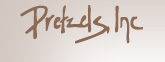 Pretzels, Inc